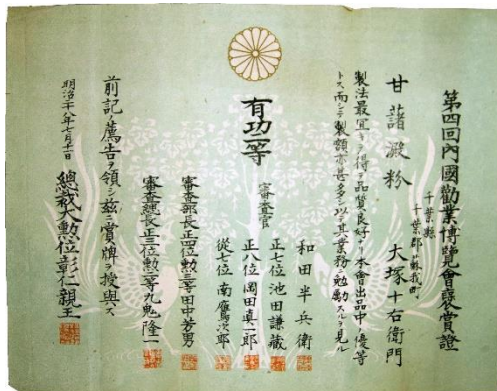 第四回內國勸業博覽會褒賞證
千葉縣
千葉郡蘇我町
甘藷澱粉
大塚十右衛門
製法最宜キヲ得テ品質良好ナリ本會出品中ノ優等
トス而シテ製額亦甚多シ以テ其業務ニ勉勵スルヲ見ル
有功二等
審査官
和田半兵衛
正七位池田謙藏
正八位岡田真一郎
從七位南鷹次郎
審査部長正四位勲三等田中芳男
審査總長正三位勲二等九鬼隆一
前記ノ薦告ヲ領シ茲ニ賞牌ヲ授與ス
總裁大勲位彰仁親王